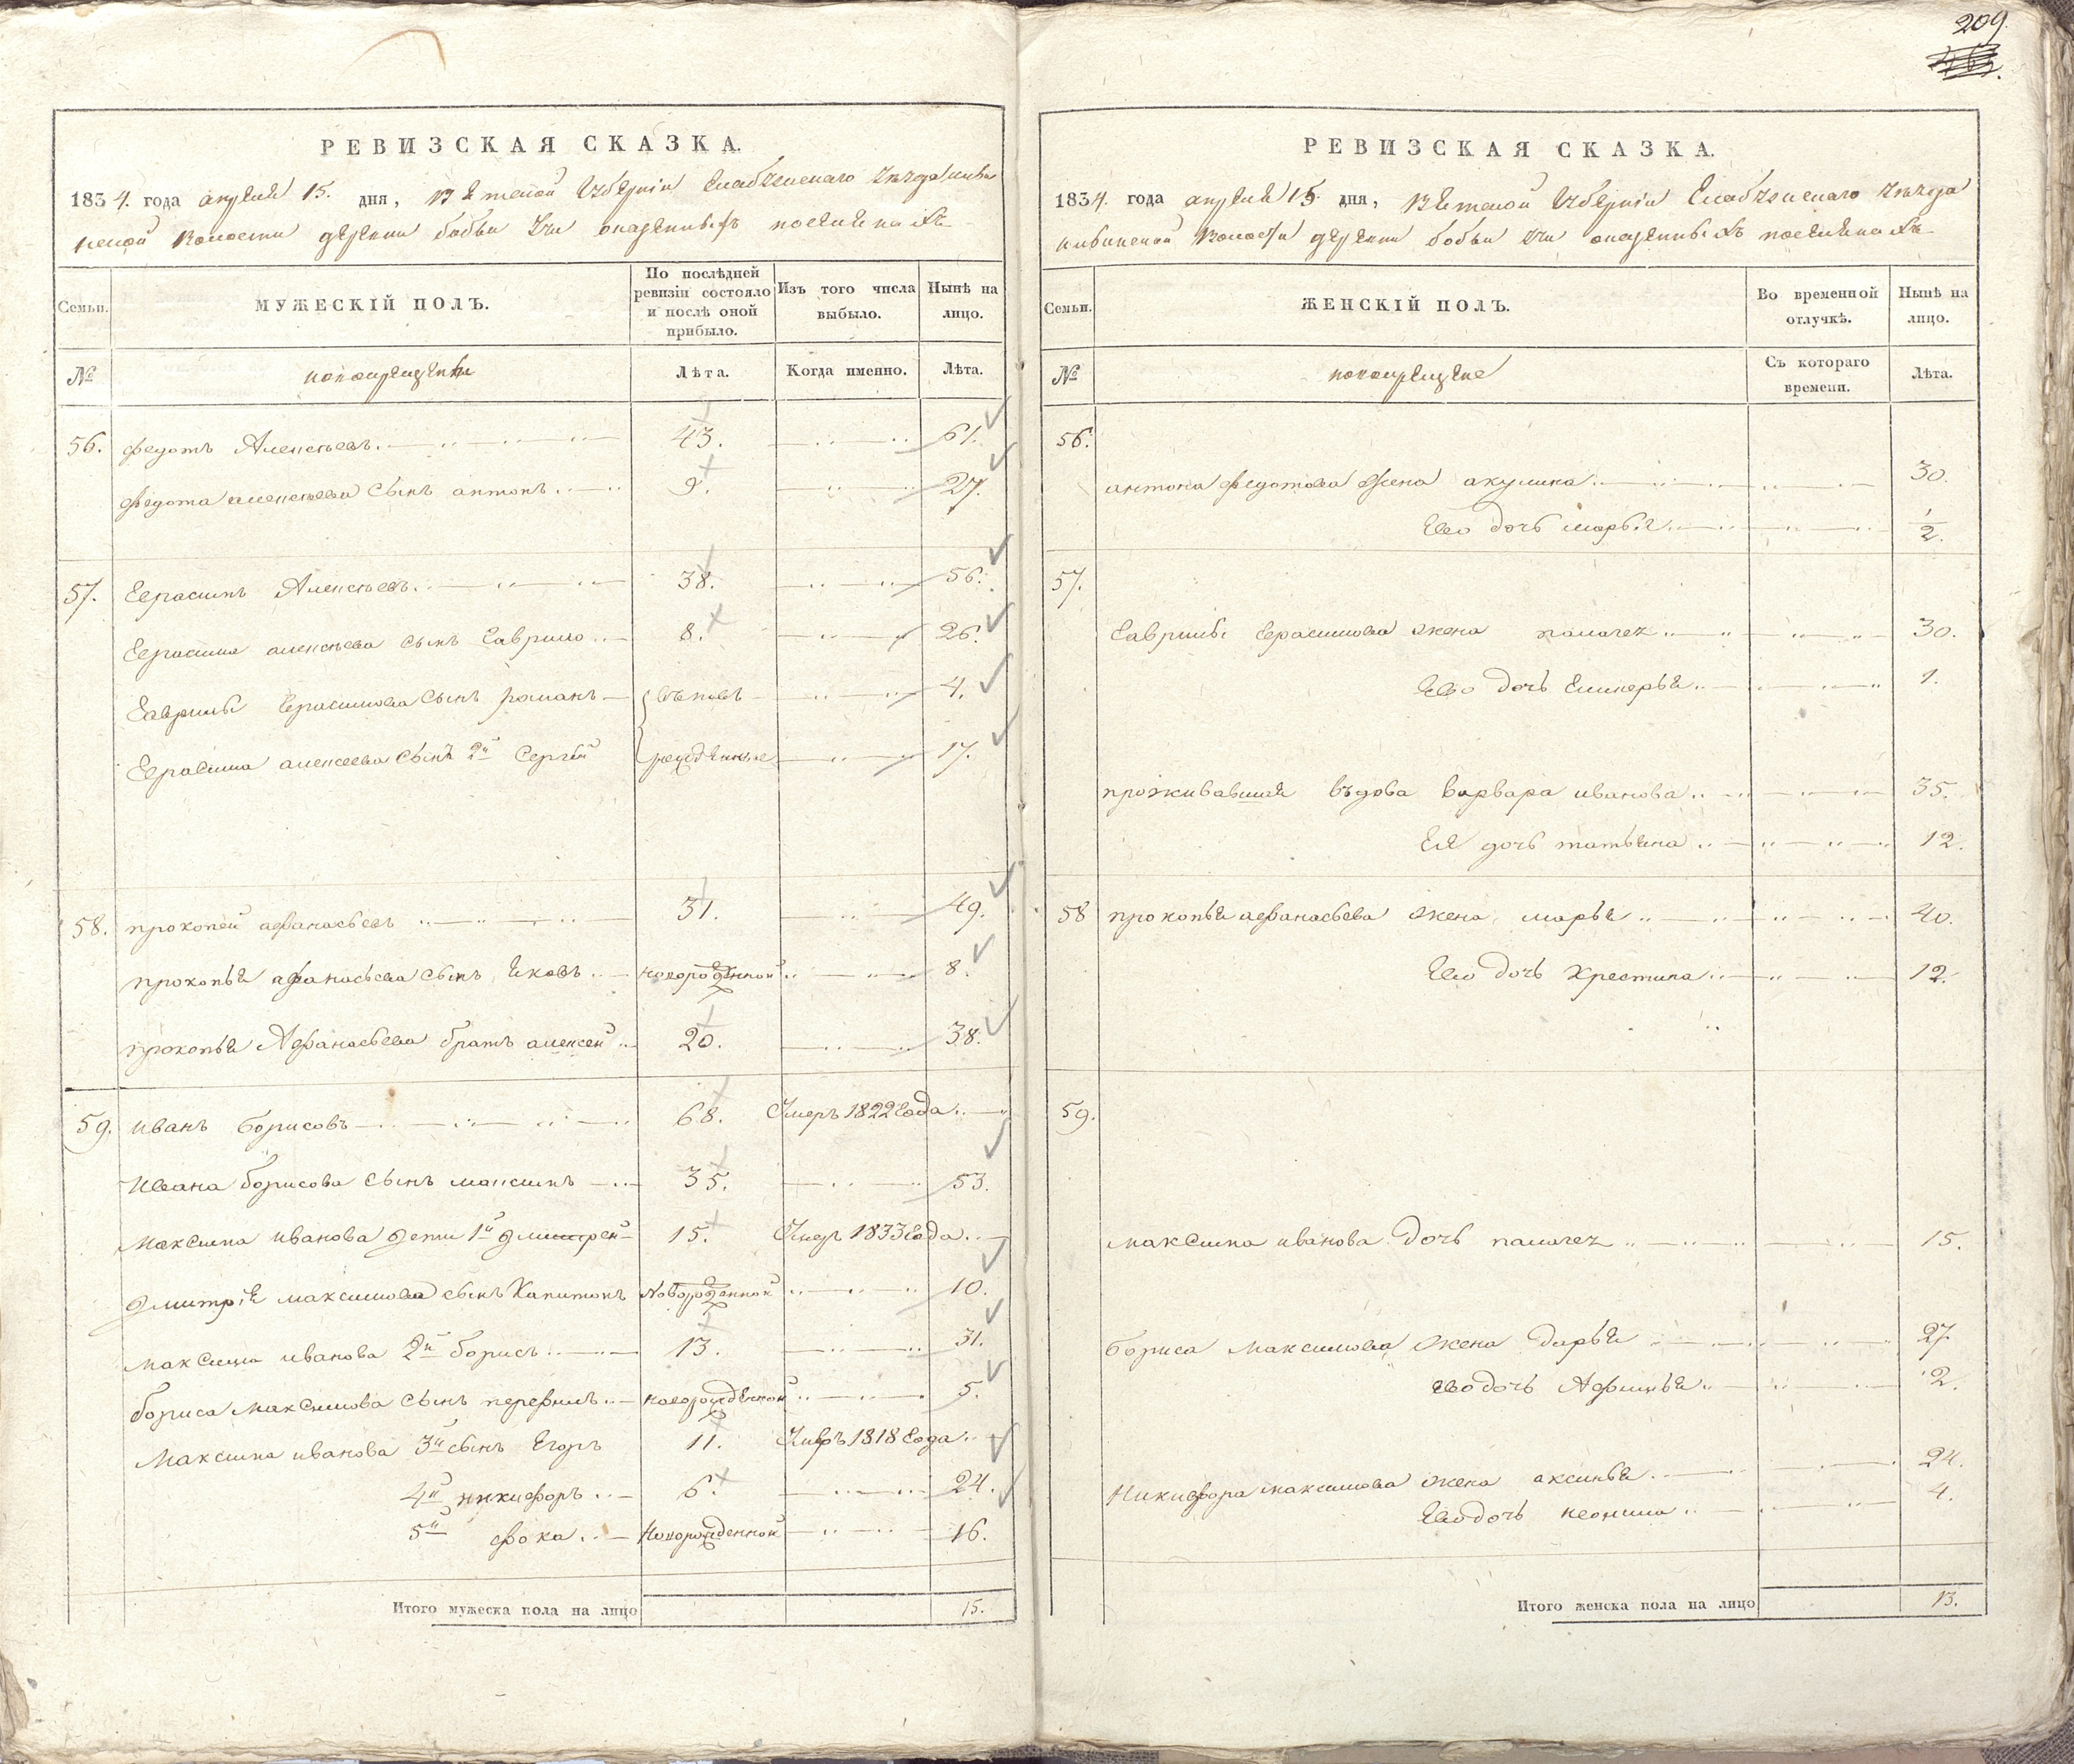 209.
РЕВИЗСКАЯ СКАЗКА.
1834. года апреля 15. дня, Вятской губернии Елабужскаго уезда
волости деревни бобьи учи
Семьи.
МУЖЕСКІЙ ПОЛЪ.
По послѣдней ревизіи состояло и послѣ оной прибыло.
Изъ того числа выбыло.
Нынѣ на лицо.
№
новокрещены
Лѣта.
Когда именно.
Лѣта.
56. Федотъ Алексѣевъ 43. 61.
Федота алексѣева сынъ антонъ 9. 27.
57. Герасимъ Алексѣевъ 38. 56.
Герасима алексѣева сынъ Гаврило 8. 26.
Гаврилы Герасимова сынъ романъ вновь 4.
Герасима алексеева сынъ 2й Сергѣй рожденные 17.
58. прокопей афанасьевъ 31. 49.
прокопья афанасьева сынъ яковъ новорожденной 8.
прокопья Афанасьева братъ алексей 20. 38.
59. иванъ борисовъ 68. Умеръ 1822 Года
Ивана борисова сынъ максимъ 35. 53.
максима иванова дети 1й дмитрей 15. Умеръ 1833 Года
дмитрія максимова сынъ Капитонъ Новорожденной 10.
максима иванова 2й борисъ 13. 31.
бориса максимова сынъ перфилъ новорожденной 5.
максима иванова 3й сынъ Егоръ 11. Умръ 1818 Года
4й никифоръ 6. 24.
5й фока Новорожденной 16.
Итого мужеска пола на лицо 15.
РЕВИЗСКАЯ СКАЗКА.
1834. года апреля 15. дня, Вятской губернии Елабужскаго уезда
волости деревни бобьи учи
Семьи.
ЖЕНСКІЙ ПОЛЪ.
Во временной отлучкѣ.
Нынѣ на лицо.
№
новокрещене
Съ котораго времени.
Лѣта.
56.
антона федотова жена акулина 30.
Ево дочь марья 1/2.
57.
Гаврилы Герасимова жена палагея 30.
Ево дочь Гликерья 1.
проживавшая въдова варвара иванова 35.
Ея дочь татьяна 12.
58 прокопья афанасьева жена марья 40.
Ево дочь Христина 12.
59.
максима иванова дочь палагея 15.
бориса максимова жена дарья 27.
ево дочь Афимья 2.
Никифора максимова жена аксинья 24.
Ево дочь неонила 4.
Итого женска пола на лицо 13.